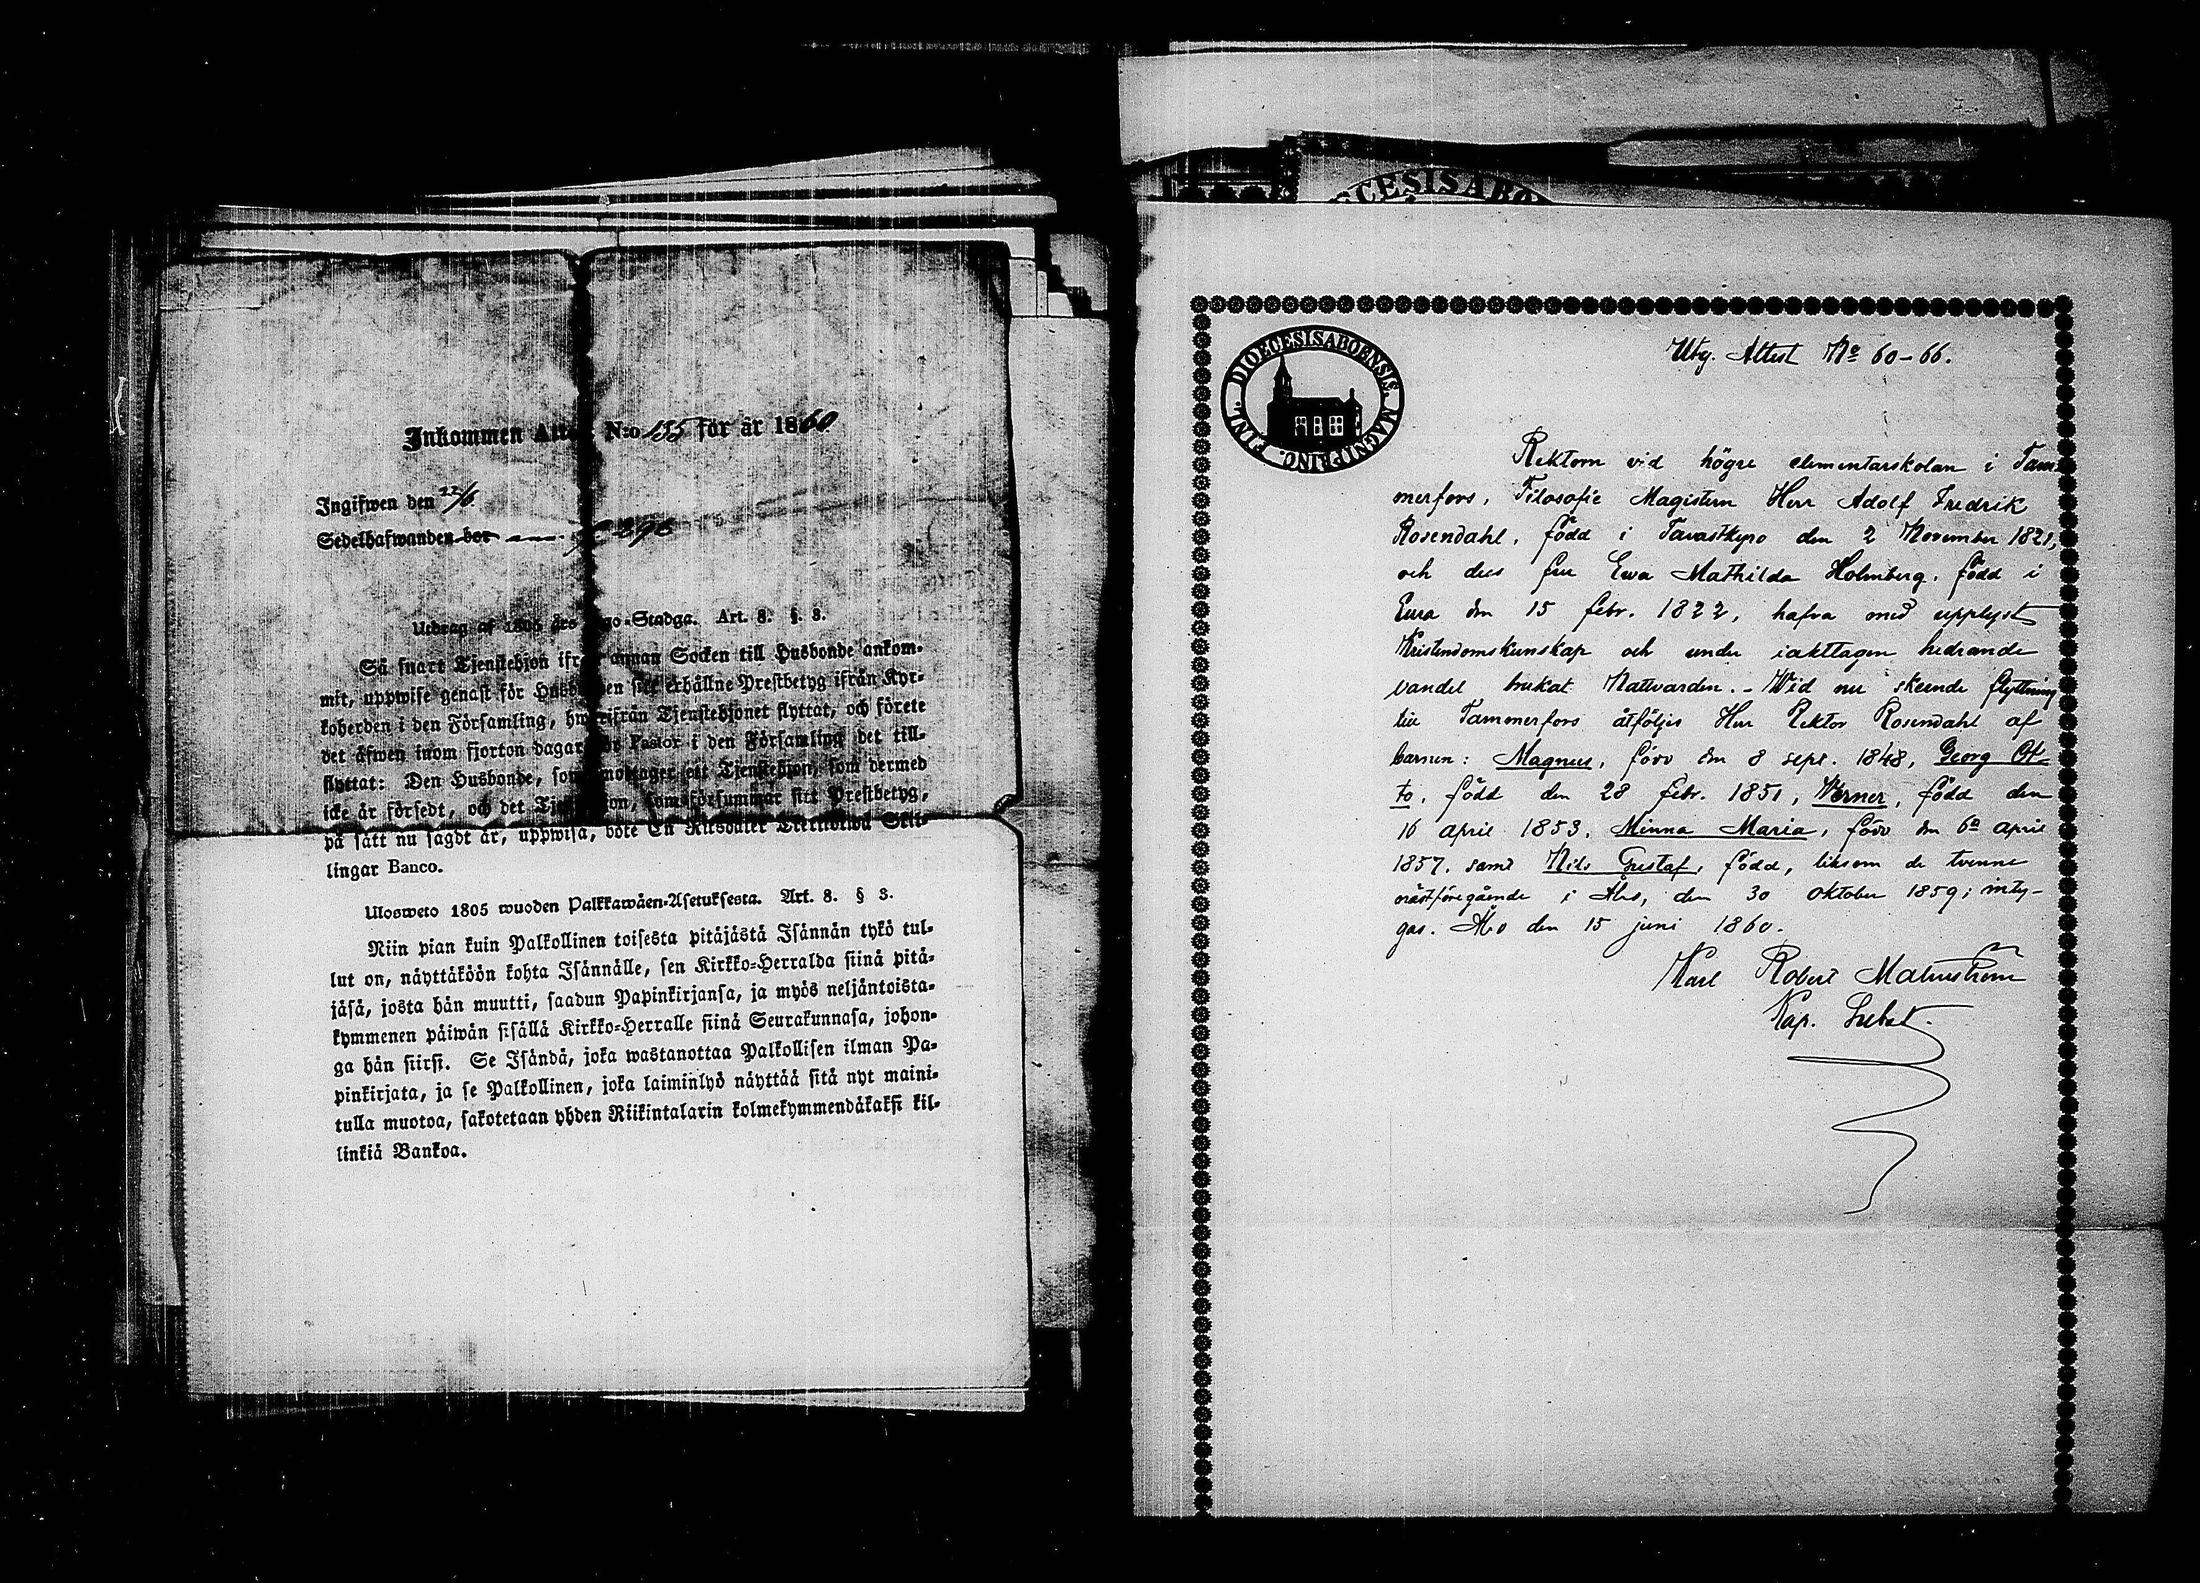 Inkommen Attest N:o 155 för år 1860
Ingifwen den 22/6.
Sedelhafwanden bor p. 296
Utdrag af 1805 års Lego-Stadga. Art. 8. §. 3.
Så snart Tjenstehjon ifrån annan Socken till Husbonde ankom-
mit, uppwise genast för Husbonden sitt erhållne Prestbetyg ifrån Kyr-
koherden i den Församling, hwarifrån Tjenstehjonet flyttat, och förete
det äfwen inom fjorton dagar för Pastor i den Församling det till-
flyttat: Den Husbonde, som mottager ett Tjenstehjon, som dermed
icke är försedt, och det Tjenstehjon, som försummar sitt Prestbetyg,
på sätt nu sagdt är, uppwisa, böte En Riksdaler Trettiotwå Skil-
lingar Banco.
Ulosweto 1805 wuoden Palkkawäen-Asetuksesta. Art. 8. § 3.
Niin pian kuin Palkollinen toisesta pitäjästä Isännän tykö tul-
lut on, näyttäköön kohta Isännälle, sen Kirkko-Herralda siinä pitä-
jäsä, josta hän muutti, saadun Papinkirjansa, ja myös neljäntoista-
kymmenen päiwän sisällä Kirkko-Herralle siinä Seurakunnasa, johon-
ga hän siirsi. Se Isändä, joka wastanottaa Palkollisen ilman Pa-
pinkirjata, ja se Palkollinen, joka laiminlyö näyttää sitä nyt maini-
tulla muotoa, sakotetaan yhden Riikintalarin kolmekymmendäkaksi kil-
linkiä Bankoa.
ECESISABO
DIOECESISABOENSIS. MAGNI PRINC. FINL.
Utg. Attest No 60-66.
Rektorn vid högre elementarskolan i Tam-
merfors, Filosofie Magistern Herr Adolf Fredrik
Rosendahl, född i Tavastkyro den 2 November 1821,
och dess fru Ewa Mathilda Holmberg, född i
Eura den 15 febr. 1822, hafva med upplyst
Kristendomskunskap och under iakttagen hedrande
vandel brukat Nattvarden. - Wid nu skeende flyttning
till Tammerfors åtföljes Herr Rektor Rosendahl af
barnen: Magnus, född den 8 sept. 1848, Georg Ot-
to, född den 28 febr. 1851, Werner, född den
16 april 1853, Minna Maria, född den 6e april
1857, samt Nils Gustaf, född, liksom de tvenne
nästföregående i Åbo, den 30 oktober 1859; inty-
gas. Åbo den 15 juni 1860.
Karl Robert Malmström
Kap. Subst.